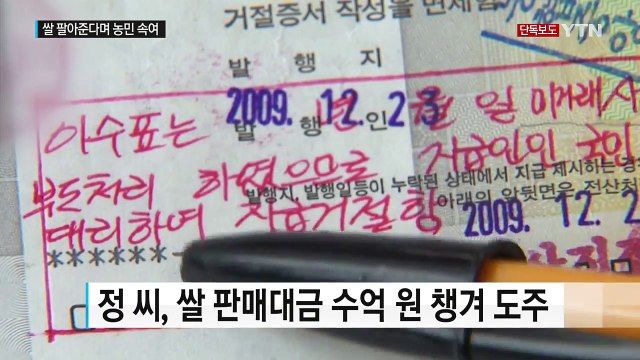 쌀 팔아준다며 농민 속여
단독보도 YTN
거절증서 작성을 면제함
발 행 지
2009. 12. 23
년 월 일
발 행 인
이수표는
부도처리 하였으므로 지급인의
발행지, 발행일등이 누락된 상태에서 지급 제시하는 경
대리하여 지급거절함 2009. 12. 2
아래의 앞뒷면은 전산처
******
정 씨, 쌀 판매대금 수억 원 챙겨 도주